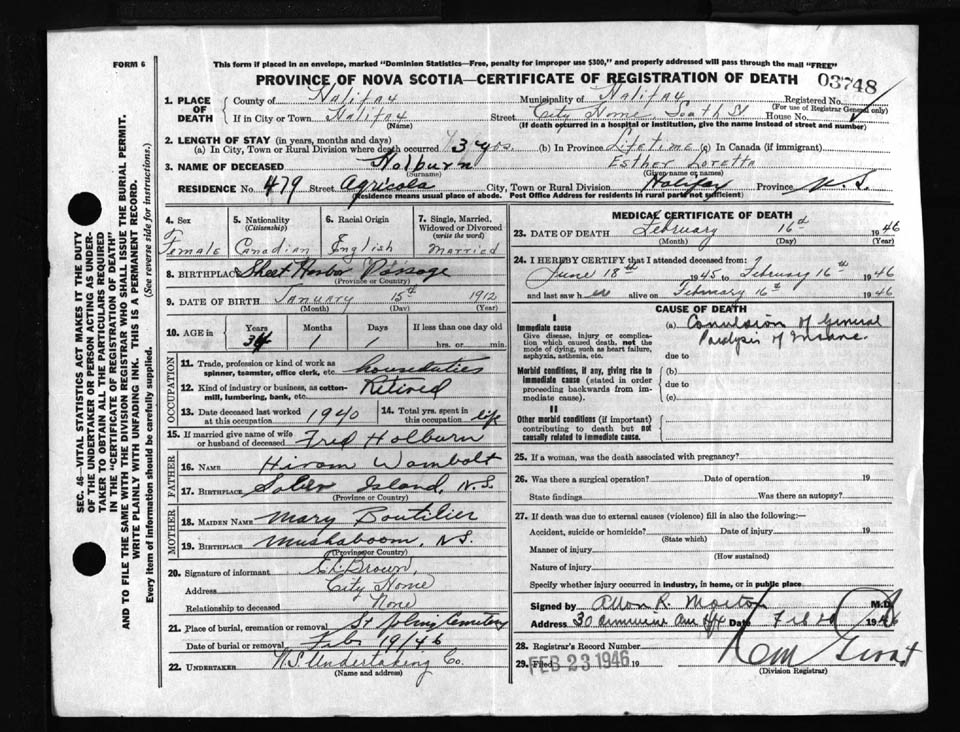 FORM 6
This form if placed in an envelope, marked "Dominion Statistics—Free, penalty for improper use $300," and properly addressed will pass through the mail "FREE"
PROVINCE OF NOVA SCOTIA—CERTIFICATE OF REGISTRATION OF DEATH
03748
1. PLACE OF DEATH County of Halifax Municipality of Halifax Registered No.
(For use of Registrar General only)
If in City or Town Halifax Street City Home, South St House No.
(Name) (If death occurred in a hospital or institution, give the name instead of street and number)
2. LENGTH OF STAY (in years, months and days)
(a) In City, Town or Rural Division where death occurred 3 yrs. (b) In Province Lifetime (c) In Canada (if immigrant)
3. NAME OF DECEASED Holburn Esther Loretta
(Surname) (Given name or names)
RESIDENCE No. 479 Street Agricola City, Town or Rural Division Halifax Province N.S.
(Residence means usual place of abode. Post Office Address for residents in rural parts not sufficient)
4. Sex
Female
5. Nationality
(Citizenship)
Canadian
6. Racial Origin
English
7. Single, Married, Widowed or Divorced
(write the word)
Married
8. BIRTHPLACE Sheet Harbor Passage
(Province or Country)
9. DATE OF BIRTH January 15th 1912
(Month) (Day) (Year)
10. AGE in Years Months Days If less than one day old
34 1 1 hrs. or min.
OCCUPATION
11. Trade, profession or kind of work as spinner, teamster, office clerk, etc. Houseduties
12. Kind of industry or business, as cotton-mill, lumbering, bank, etc. Retired
13. Date deceased last worked at this occupation 1940
14. Total yrs. spent in this occupation life
15. If married give name of wife or husband of deceased Fred Holburn
FATHER
16. NAME Hiram Wambolt
17. BIRTHPLACE Sober Island, N.S.
(Province or Country)
MOTHER
18. MAIDEN NAME Mary Boutilier
19. BIRTHPLACE Mushaboom, N.S.
(Province or Country)
20. Signature of informant Brown,
Address City Home
Relationship to deceased None
21. Place of burial, cremation or removal St Cemetery
Date of burial or removal Feb 19/46
22. UNDERTAKER N.S. Undertaking Co.
(Name and address)
MEDICAL CERTIFICATE OF DEATH
23. DATE OF DEATH February 16th 1946
(Month) (Day) (Year)
24. I HEREBY CERTIFY that I attended deceased from:
June 18th 1945 to February 16th 1946
and last saw her alive on February 16th 1946
CAUSE OF DEATH
I
Immediate cause
Give disease, injury or complication which caused death, not the mode of dying, such as heart failure, asphyxia, asthenia, etc.
(a) Convulsion of General
Paralysis of Insane.
due to
Morbid conditions, if any, giving rise to immediate cause (stated in order proceeding backwards from immediate cause).
(b)
due to
(c)
II
Other morbid conditions (if important) contributing to death but not causally related to immediate cause.
25. If a woman, was the death associated with pregnancy?
26. Was there a surgical operation? Date of operation 19
State findings Was there an autopsy?
27. If death was due to external causes (violence) fill in also the following:—
Accident, suicide or homicide? Date of injury 19
(State which)
Manner of injury
(How sustained)
Nature of injury
Specify whether injury occurred in industry, in home, or in public place
Signed by Allan R. Morton M.D.
Address 30 Ave Date Feb 20 1946
28. Registrar's Record Number
29. Filed FEB 23 1946
(Division Registrar)
SEC. 46—VITAL STATISTICS ACT MAKES IT THE DUTY
OF THE UNDERTAKER OR PERSON ACTING AS UNDERTAKER
TO OBTAIN ALL THE PARTICULARS REQUIRED
IN THE "CERTIFICATE OF REGISTRATION OF DEATH"
AND TO FILE THE SAME WITH THE DIVISION REGISTRAR WHO SHALL ISSUE THE BURIAL PERMIT.
WRITE PLAINLY WITH UNFADING INK. THIS IS A PERMANENT RECORD.
Every item of information should be carefully supplied. (See reverse side for instructions.)